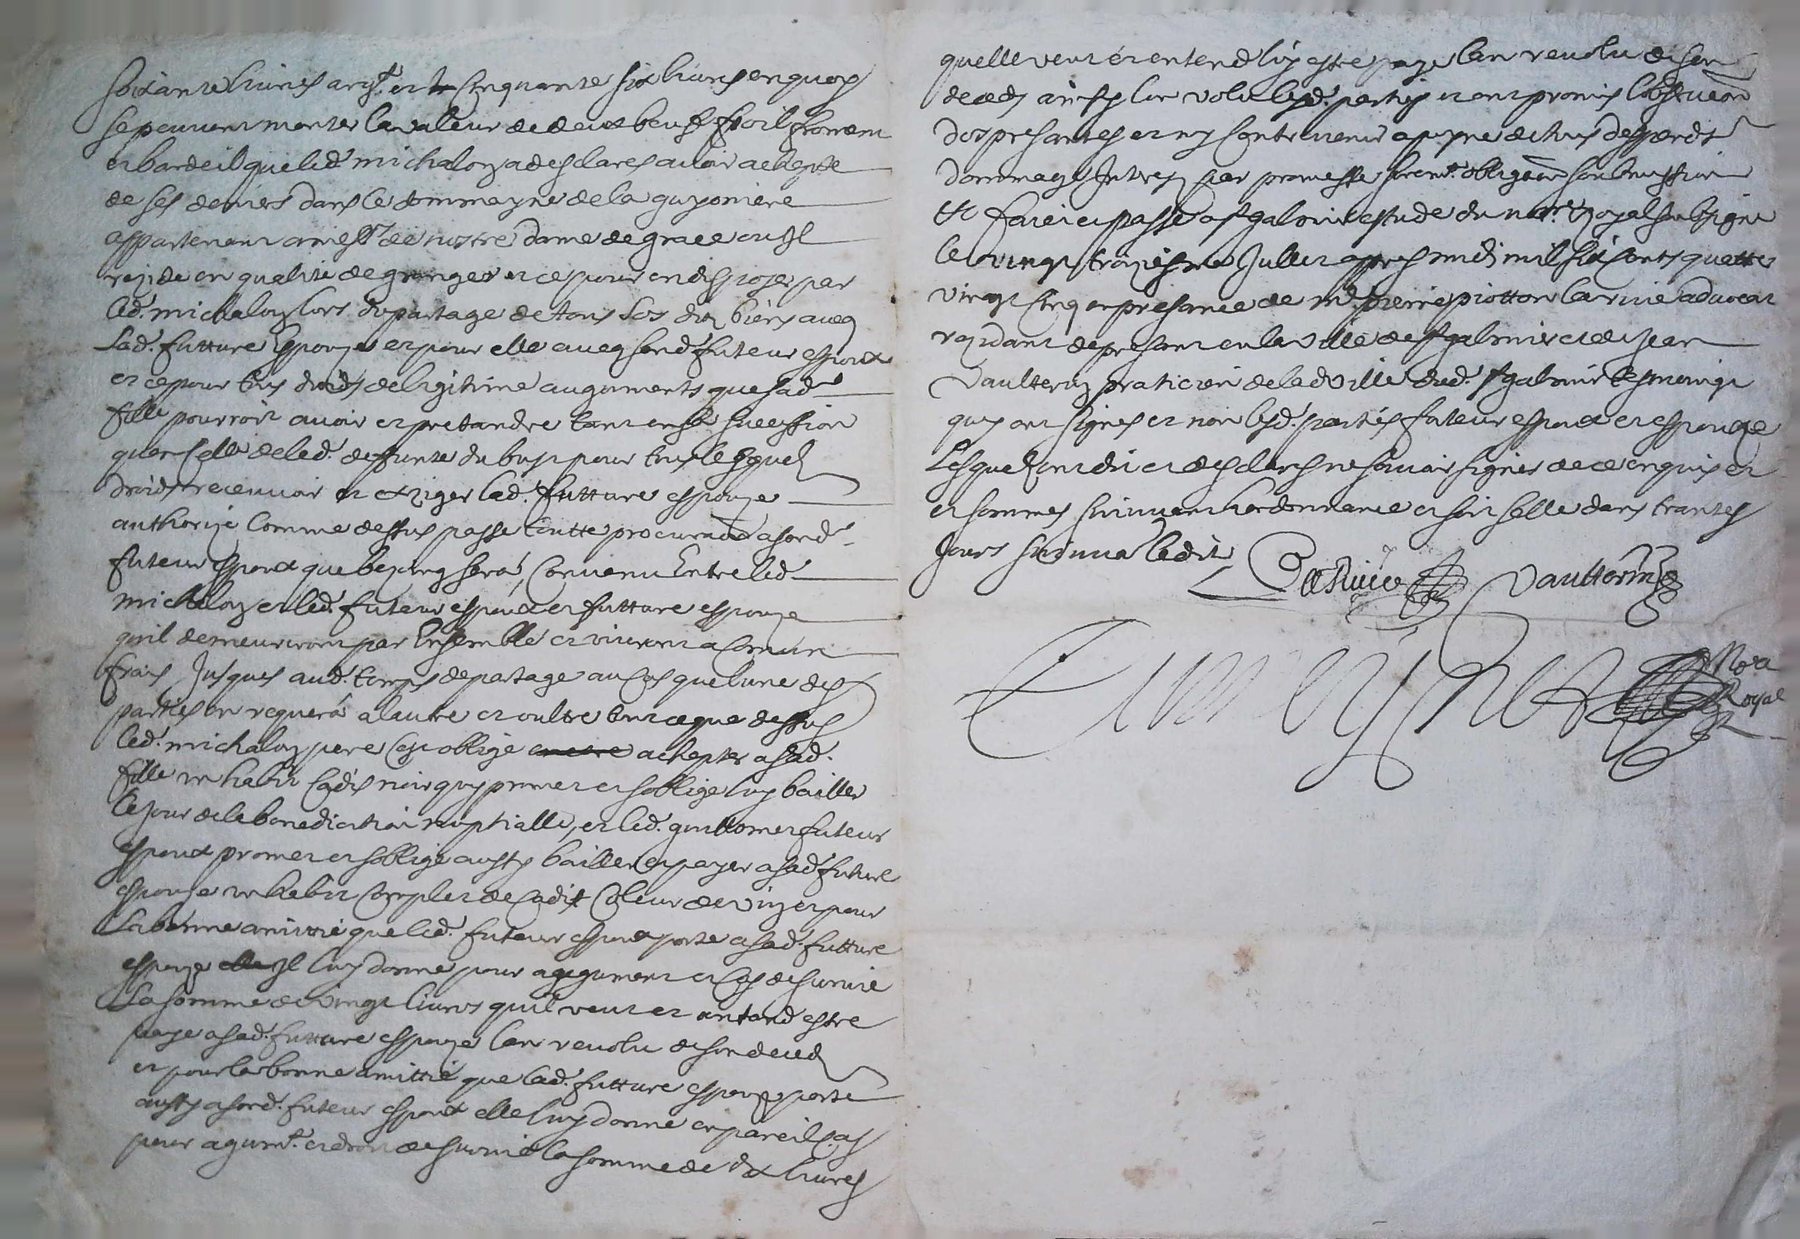 soixante livres argt. et le cinquante six livres en quoy
se peuvent monter la valleur de deux beufs froil froment
et bardeil que led. michalon a desclares avoir achepte
de ses deniers dans le dommayne de la guyoniere
appartenant a messrs de nostre dame de grace ou Il
reside en qualité de granger et ce pour en disposer par
led. michalon lors du partage de tous ses dits biens aveq
lad. futture espouze et pour elle aveq sond. futeur espoux
et ce pour tous droits de legitime augments que sad.
fille pourroit avoir et pretandre tant en sa sucession
qu'en celle de lad. deffunte du buys pour tous lesquels
droits recepvoir et exziger lad. futture espouze
authorizé comme dessus passe toutte procuration a sond.
futeur espoux que bezoing sera, Convenu Entre led.
michalon et led. futeur espoux et futture espouze
quil demeureront par Ensemble et vivront a comun
frais Jusques aud. temps de partage au cas que lune des
parties en requera a lautre et oultre ce que dessus
led. michalon pere cest obligé achepter a sad.
fille un habit cadis noir quy promet et soblige luy bailler
le jour de la benediction nuptialle, et led. guillomet futeur
espoux promet et soblige aussy bailler et payer a sad. future
espouze un habit complet de cadix coleur de et pour
la bonne amittié que led. futeur espoux porte a sad. futture
espouze Il luy donne pour augument et cas de survie
la somme de vingt livres quil veut et antand estre
paye a sad. futture espouze lan revolu de son deceds
et pour la bonne amittié que lad. futture espouze porte
aussy a sond. futeur espoux elle luy donne en pareil cas
pour agumt. et droit de survie la somme de dix livres
quelle veut et entend luy estre paye lan revolu de son
deceds ainsy lon volu lesd. parties et ont promis lobservaon
des presantes et ny contrevenir a peyne de tous despends
dommages Intrez par promesse sermt. obligaon soubmission
etc faict et passé a st galmier estude du nore. Royal soubsigné
le vingt troiziesme Jullet appres midi mil six cents quattre
vingt cinq en presance de me pierre piotton larivie advocat
rezidant de presant en la ville de st galmier et de jean
Vaulterin praticien de lad ville dud. st galmier tesmoings
quy ont signes et non lesd. parties futeur espoux et espouze
lesquels ont dit et desclares ne scavoir signer de ce enquis et
et sommes suivant lordonnance et soit selle dans trantes
jours suivant ledit
Larivie Vaulterin
Nore
Royal